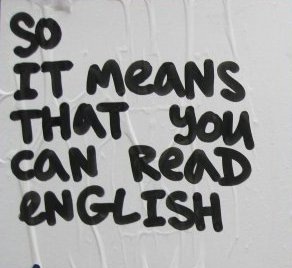 SO
IT MeANS
THAT YOU
CAN ReAD
eNGLISH